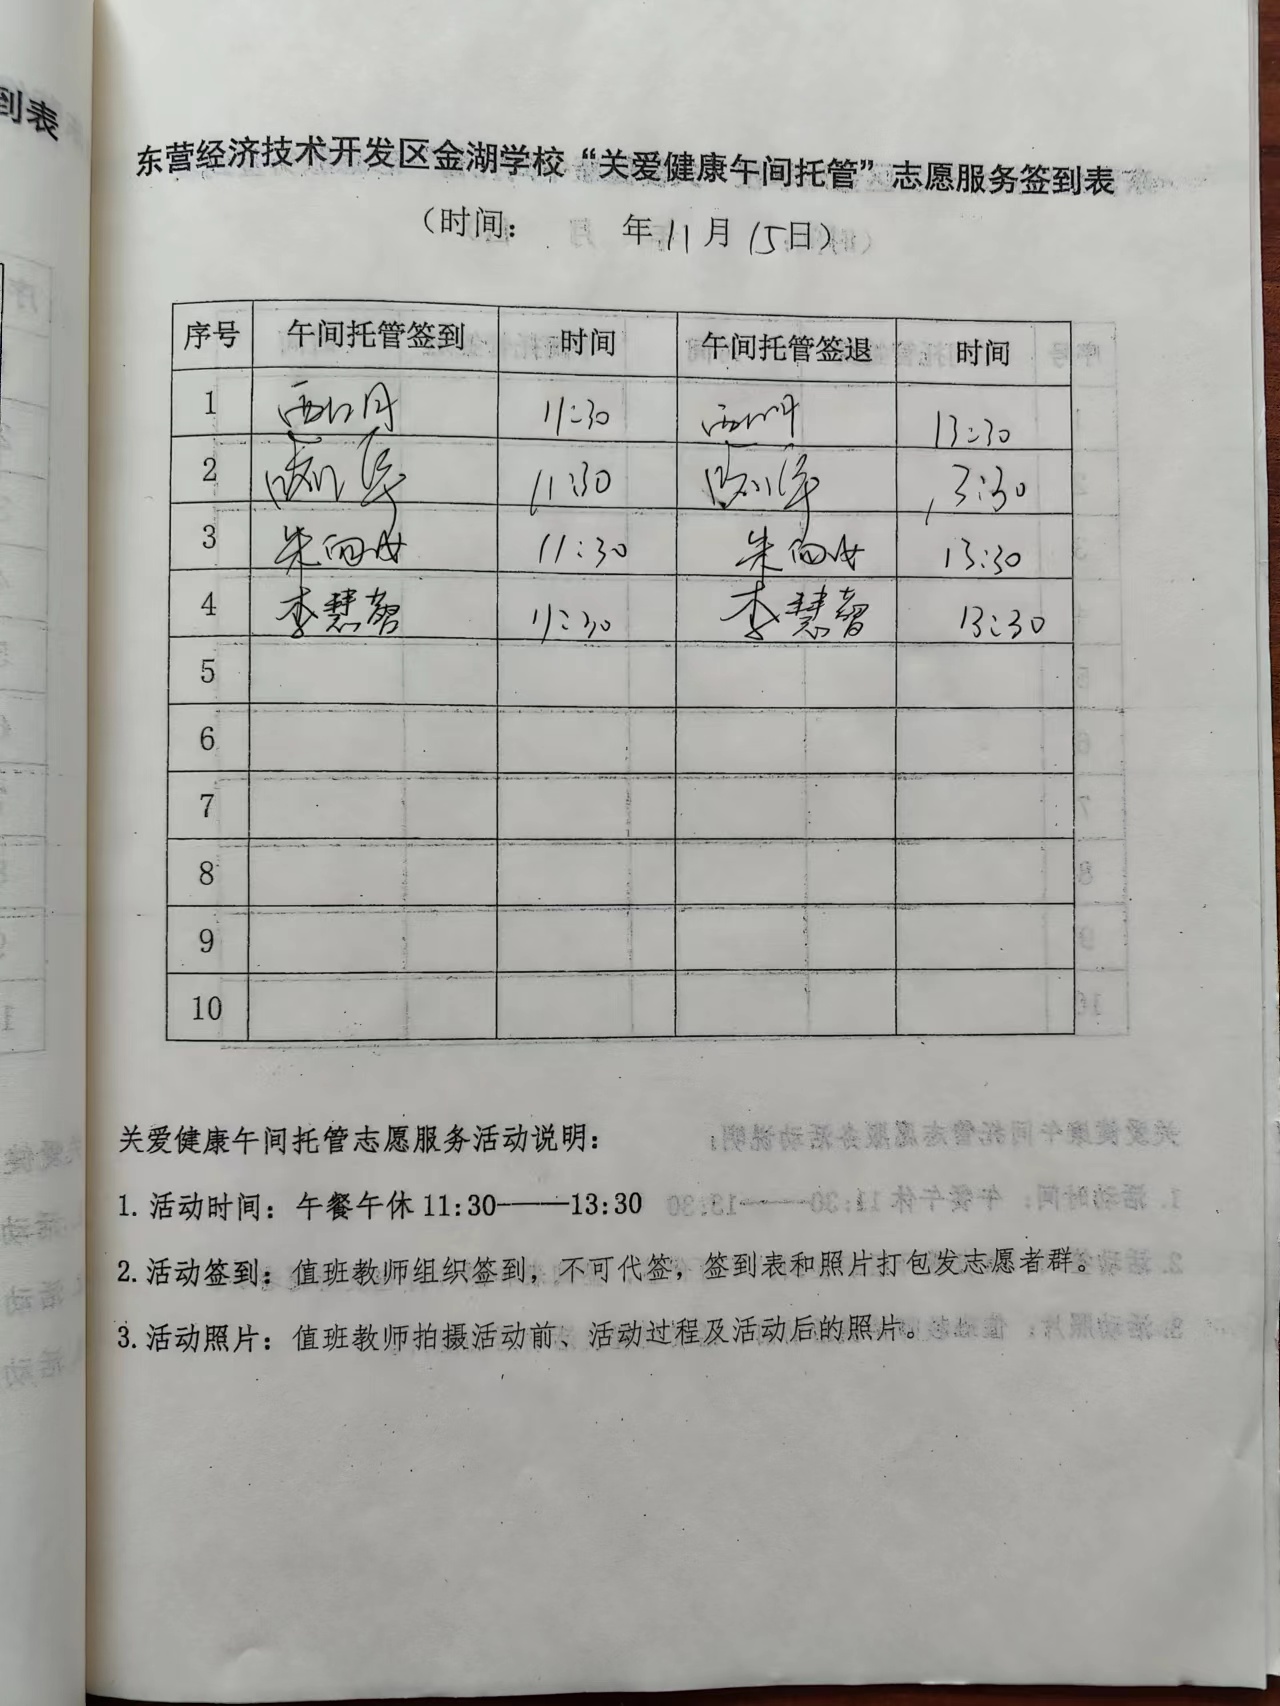 到表
东营经济技术开发区金湖学校“关爱健康午间托管”志愿服务签到表
（时间： 年 11 月 15 日）
序号 午间托管签到 时间 午间托管签退 时间
1 11:30 13:30
2 11:30 13:30
3 朱 11:30 朱 13:30
4 李慧智 11:30 李慧智 13:30
5
6
7
8
9
10
关爱健康午间托管志愿服务活动说明：
1. 活动时间：午餐午休 11:30——13:30
2. 活动签到：值班教师组织签到，不可代签，签到表和照片打包发志愿者群。
3. 活动照片：值班教师拍摄活动前、活动过程及活动后的照片。